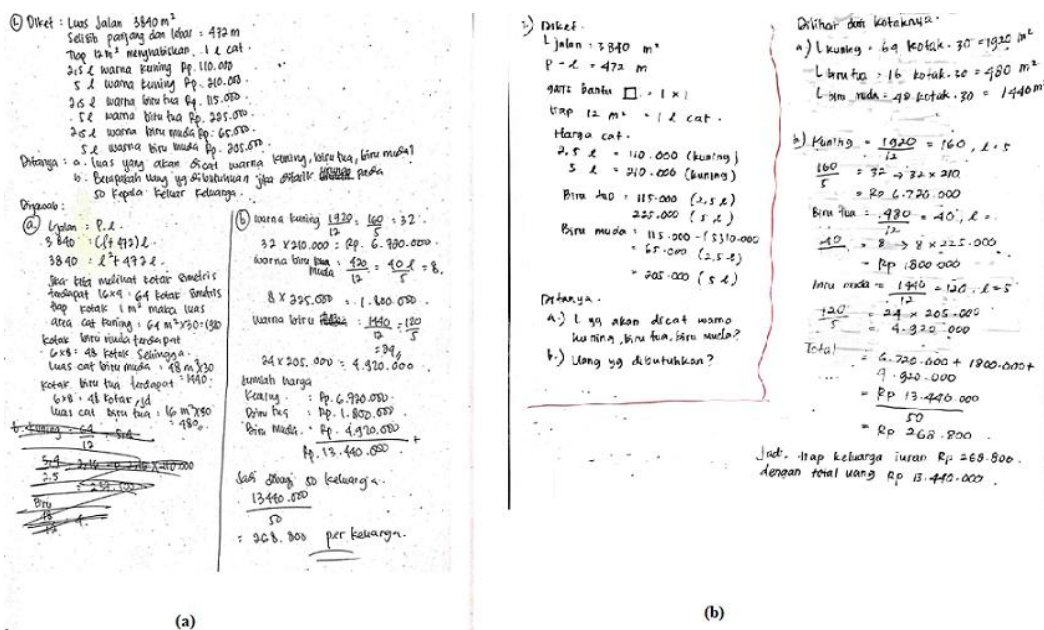 ① Diket : Luas Jalan 3840 m²
Selisih panjang dan lebar = 472 m
Tiap 12 m² menghabiskan 1 l cat.
2,5 l warna kuning Rp. 110.000
5 l warna kuning Rp. 210.000
2,5 l warna biru tua Rp. 115.000.
5 l warna biru tua Rp. 225.000.
2,5 l warna biru muda Rp. 65.000.
5 l warna biru muda Rp. 205.000.
Ditanya : a. luas yang akan dicat warna kuning, biru tua, biru muda?
b. Berapakah uang yg dibutuhkan jika ditarik pada
50 Kepala Keluarga.
Dijawab :
ⓐ Ljalan = P.l.
3840 = (l+472)l.
3840 : l²+472l.
Jika kita melihat kotak simetris
terdapat 16x4 = 64 kotak simetris
tiap kotak 1 m² maka luas
area cat kuning : 64 m²x30=1920
kotak biru muda terdapat
6x8 = 48 kotak Sehingga
luas cat biru muda : 48 m²x30
= 1440.
kotak biru tua terdapat
6x8 = 48 kotak, jd
luas cat biru tua : 16 m²x30
= 480.
ⓑ warna kuning 1920/12 = 160/5 = 32.
32 x 210.000 = Rp. 6.720.000.
warna biru muda : 420/12 = 40 l = 8.
8 x 225.000 = 1.800.000.
warna biru : 1440/12 = 120/5
= 24
24 x 205.000 = 4.920.000
Jumlah harga
Kuning : Rp. 6.720.000.
Biru tua : Rp. 1.800.000
Biru muda : Rp. 4.920.000 +
Rp. 13.440.000
Jadi dibagi 50 keluarga.
13440.000/50
= 268.800 per keluarga.
(a)
Diket.
L jalan = 3840 m²
P - l = 472 m
garis bantu □ = 1 x 1
tiap 12 m² = 1 l cat.
Harga cat.
2,5 l = 110.000 (kuning)
5 l = 210.000 (kuning)
Biru tua = 115.000 (2,5 l)
225.000 (5 l)
Biru muda =
= 65.000 (2,5 l)
= 205.000 (5 l)
Ditanya.
a.) L yg akan dicat warna
kuning, biru tua, biru muda?
b.) Uang yg dibutuhkan?
Dilihat dari kotaknya.
a) L kuning = 64 kotak . 30 = 1920 m²
L biru tua = 16 kotak . 30 = 480 m²
L biru muda = 48 kotak . 30 = 1440 m²
b) Kuning = 1920/12 = 160, l = 5
160/5 = 32 → 32 x 210.
= Rp 6.720.000
Biru tua = 480/12 = 40, l =
40 = 8 → 8 x 225.000
= Rp 1.800.000
biru muda = 1440/12 = 120, l = 5
120/5 = 24 x 205.000
= 4.920.000
Total
= 6.720.000 + 1800.000 +
4.920.000
= Rp 13.440.000/50
= Rp 268.800
Jadi, tiap keluarga iuran Rp 268.800.
dengan total uang Rp 13.440.000.
(b)